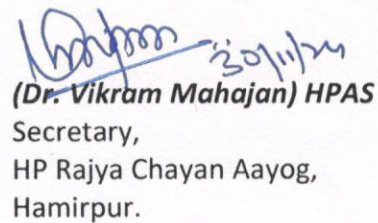 30/11/24
(Dr. Vikram Mahajan) HPAS
Secretary,
HP Rajya Chayan Aayog,
Hamirpur.